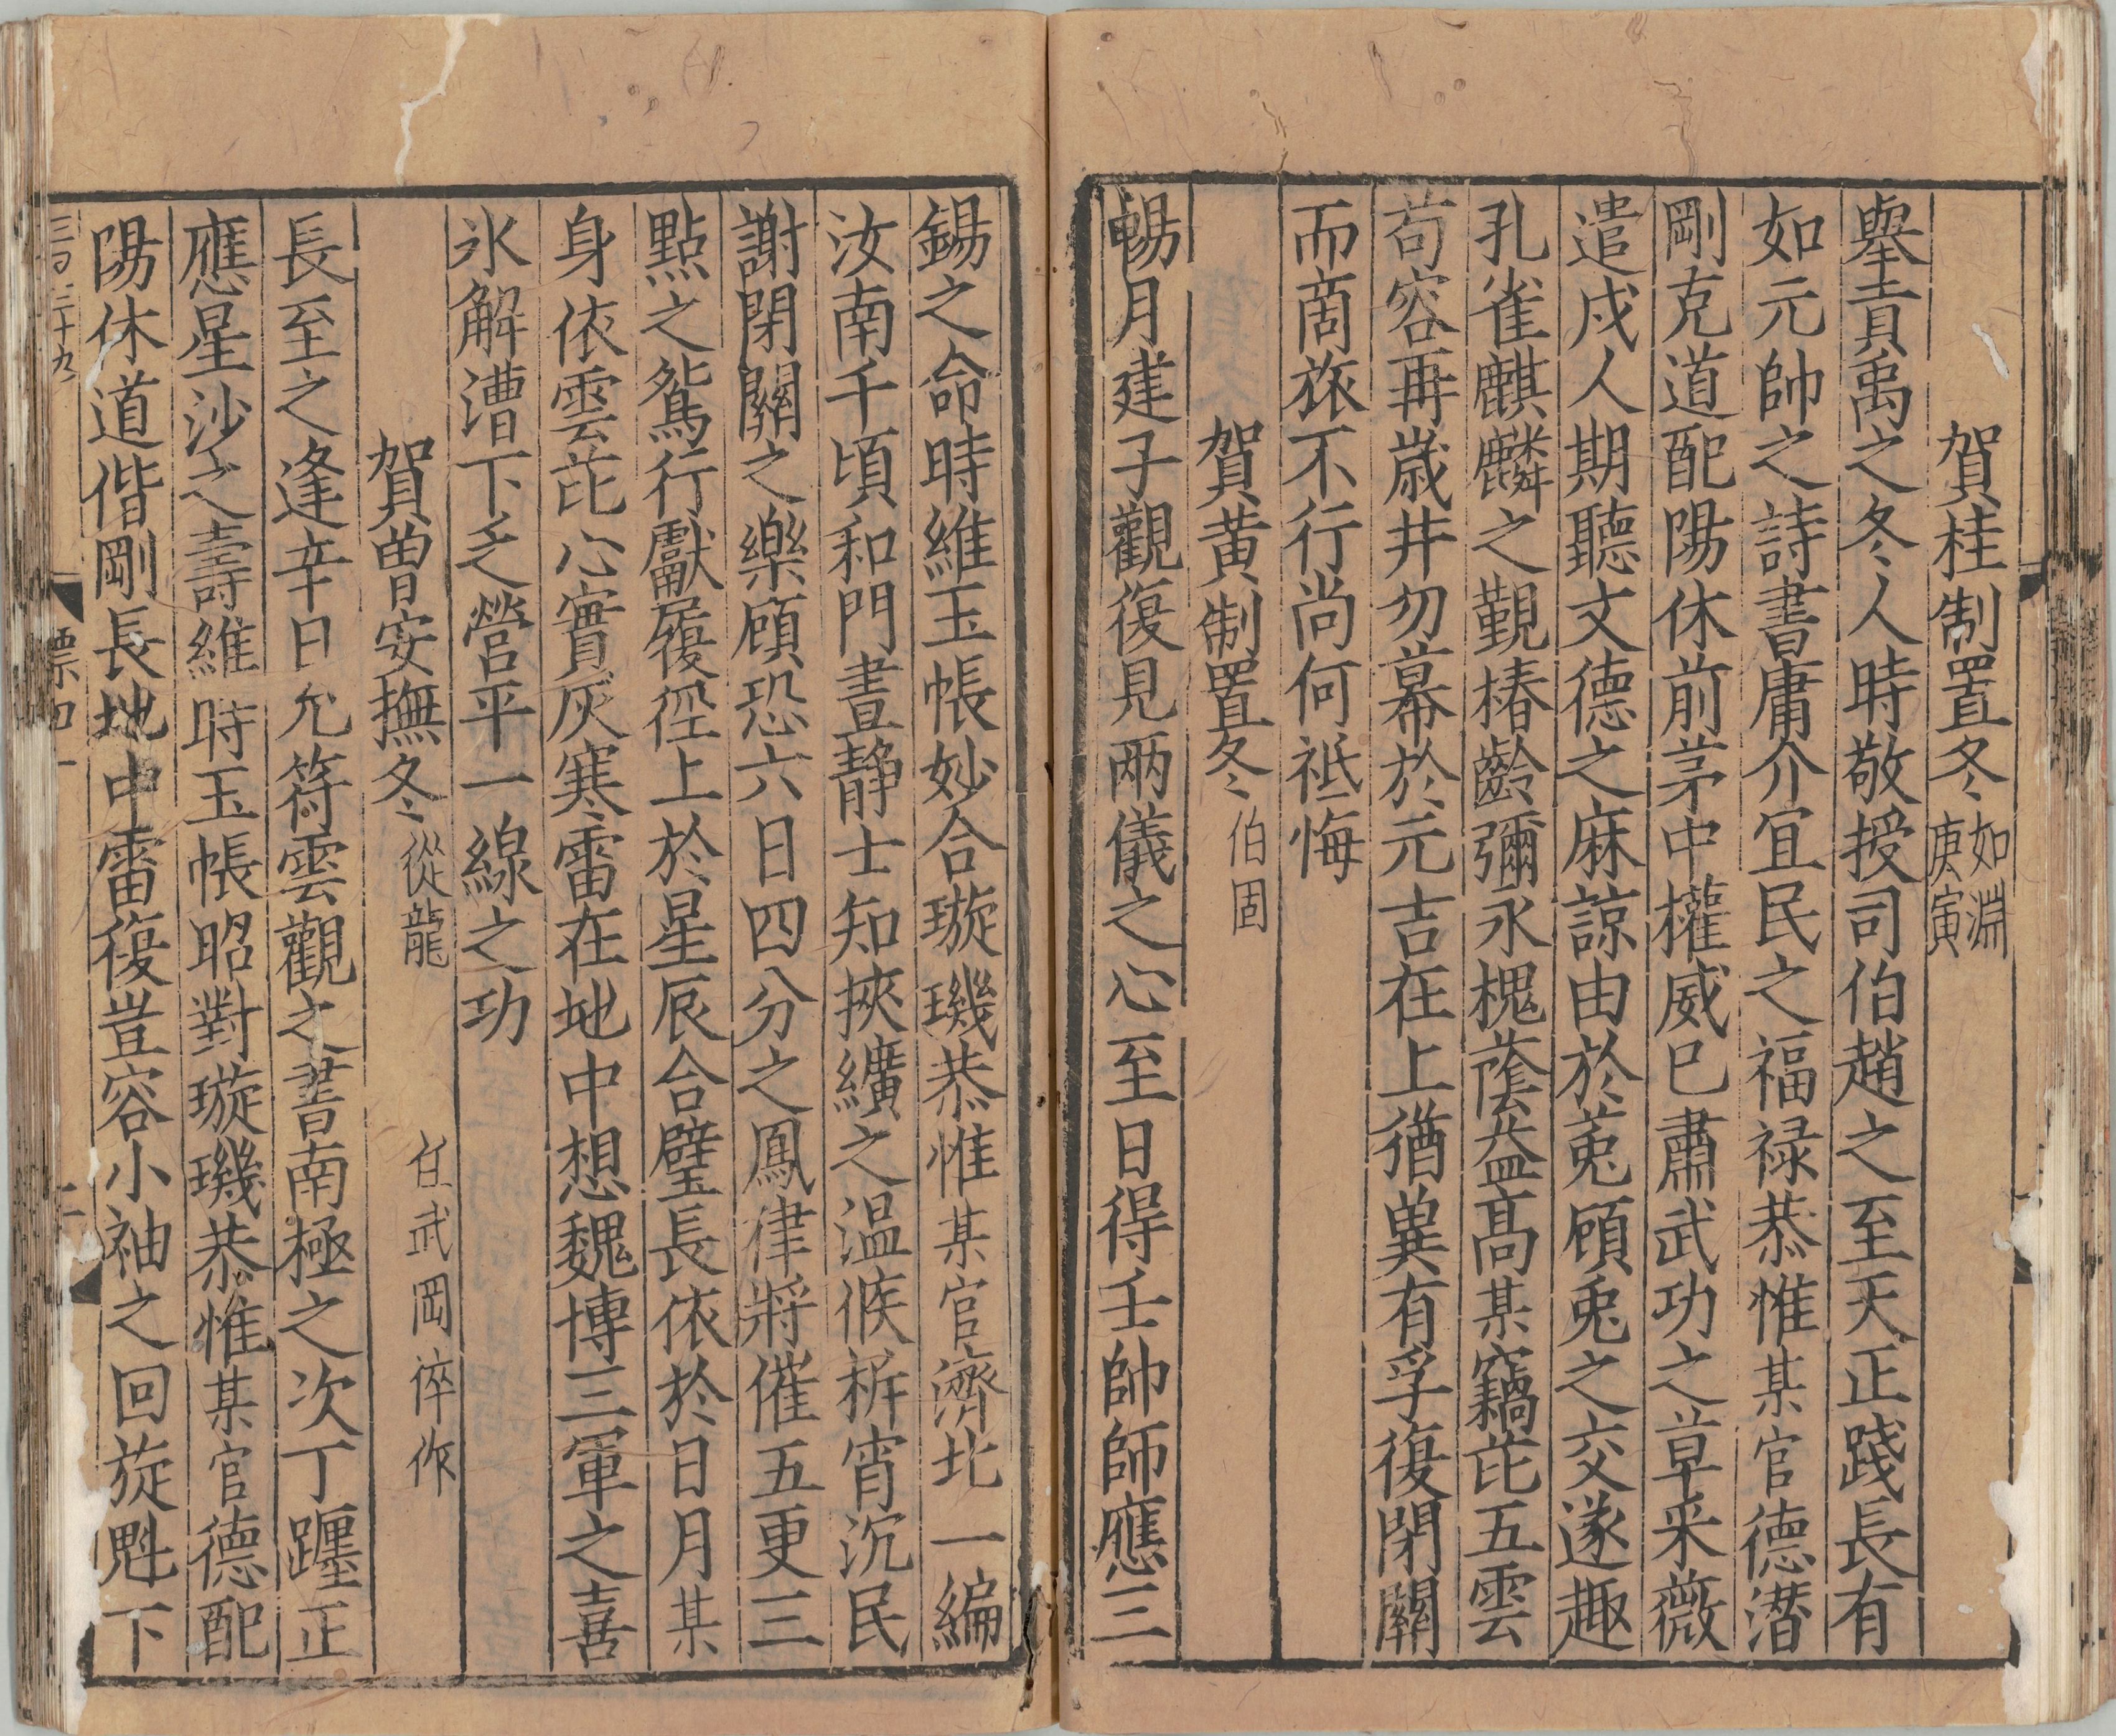 賀桂制置冬如淵庚寅
舉責禹之冬人時敬授司伯趙之至天正踐長有
如元帥之詩書庸介宜民之福禄恭惟某官德潜
剛克道配陽休前茅中權威已肅武功之草采薇
遣戍人期聽文德之麻諒由於菟顧兎之交遂趣
孔雀麒麟之覲椿齡彌永槐蔭益髙某竊芘五雲
苟容再歳井勿幕於元吉在上猶巽有孚復閉關
而商旅不行尚何祗悔
賀黄制置冬伯固
暢月建子觀復見兩儀之心至日得壬帥師應三
錫之命時維玉帳妙合璇璣恭惟某官濟北一編
汝南千頃和門晝靜士知挾纊之温候柝宵沉民
謝閉關之樂顧恐六日四分之鳳律將催五更三
點之鴛行獻履徑上於星辰合璧長依於日月某
身依雲芘心實灰寒雷在地中想魏博三軍之喜
氷解漕下乏營平一線之功
賀曽安撫冬從龍 任武岡倅作
長至之逢辛日允符雲觀之書南極之次丁躔正
應星沙之壽維時玉帳昭對璇璣恭惟某官德配
陽休道偕剛長地中雷復豈容小袖之回旋魁下
三百三十九
標四一
二